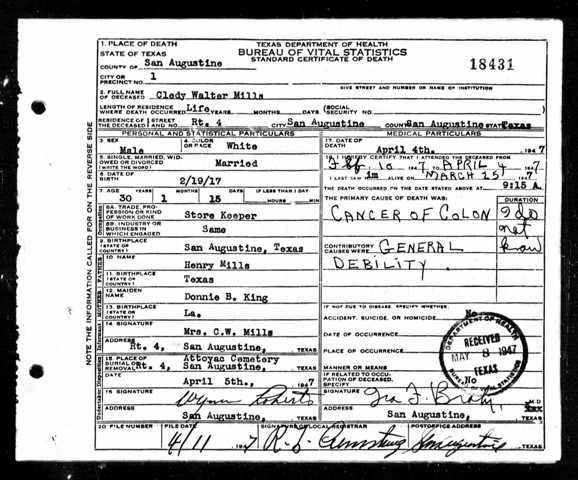 1. PLACE OF DEATH
STATE OF TEXAS
TEXAS DEPARTMENT OF HEALTH
BUREAU OF VITAL STATISTICS
STANDARD CERTIFICATE OF DEATH
18431
COUNTY OF San Augustine
CITY OR PRECINCT NO. 1
GIVE STREET AND NUMBER OR NAME OF INSTITUTION
2. FULL NAME OF DECEASED Cledy Walter Mills
LENGTH OF RESIDENCE WHERE DEATH OCCURRED Life YEARS MONTHS DAYS (SOCIAL SECURITY NO.
RESIDENCE OF THE DECEASED STREET AND NO. Rt. 4 CITY San Augustine COUNTY San Augustine STATE Texas
PERSONAL AND STATISTICAL PARTICULARS
MEDICAL PARTICULARS
3. SEX Male
4. COLOR OR RACE White
17. DATE OF DEATH April 4th. 1947
5. SINGLE, MARRIED, WIDOWED OR DIVORCED (WRITE THE WORD) Married
18. I HEREBY CERTIFY THAT I ATTENDED THE DECEASED FROM
Feb 10 1947 TO APRIL 4 1947
I LAST SAW im MARCH 15 1947
6. DATE OF BIRTH 2/19/17
THE DEATH OCCURRED ON THE DATE STATED ABOVE AT 9:15 A. M.
7. AGE YEARS MONTHS DAYS IF LESS THAN 1 DAY
30 1 15 HOURS MIN
THE PRIMARY CAUSE OF DEATH WAS: DURATION
CANCER OF COLON I do not know
8A. TRADE, PROFESSION OR KIND OF WORK DONE Store Keeper
8B. INDUSTRY OR BUSINESS IN WHICH ENGAGED Same
9. BIRTHPLACE (STATE OR COUNTRY) San Augustine, Texas
CONTRIBUTORY CAUSES WERE: GENERAL
DEBILITY.
10. NAME Henry Mills
11. BIRTHPLACE (STATE OR COUNTRY) Texas
12. MAIDEN NAME Donnie B. King
13. BIRTHPLACE (STATE OR COUNTRY) La.
IF NOT DUE TO DISEASE, SPECIFY WHETHER:
ACCIDENT, SUICIDE, OR HOMICIDE No
14. SIGNATURE Mrs. C.W. Mills
DATE OF OCCURRENCE
ADDRESS Rt. 4, San Augustine, TEXAS
PLACE OF OCCURRENCE
15. PLACE OF BURIAL OR REMOVAL Attoyac Cemetery
Rt. 4, San Augustine, TEXAS
MANNER OR MEANS
DATE April 5th., 1947
IF RELATED TO OCCUPATION OF DECEASED, SPECIFY No
16. SIGNATURE Wynn Roberts
SIGNATURE M.D.
ADDRESS San Augustine, TEXAS
ADDRESS San Augustine, TEXAS
20. FILE NUMBER
FILE DATE 4/11 1947
SIGNATURE OF LOCAL REGISTRAR
POSTOFFICE ADDRESS San Augustine TEXAS
DEPARTMENT OF HEALTH
RECEIVED
MAY 8 1947
TEXAS
BUREAU OF VITAL STATISTICS
NOTE THE INFORMATION CALLED FOR ON THE REVERSE SIDE
FATHER
MOTHER